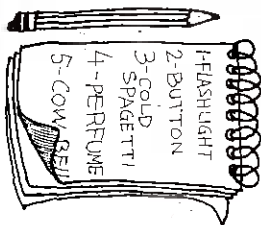 1-FLASHLIGHT
2-BUTTON
3-COLD
SPAGETTI
4-PERFUME
5-COW BELL